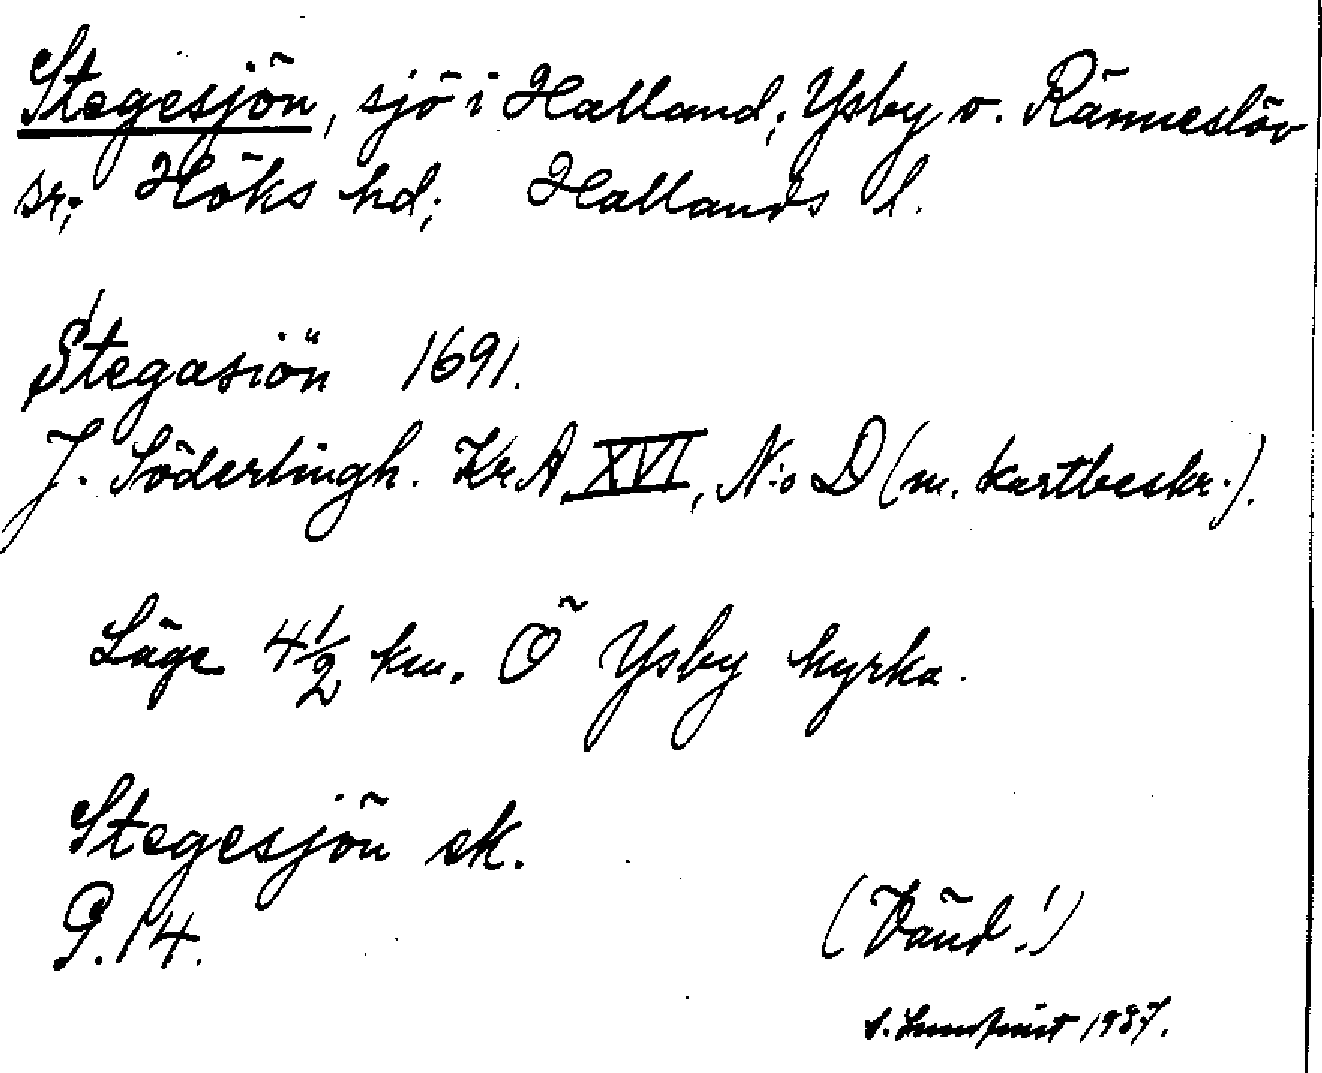 Stegesjön, sjö i Halland; Ysby o. Ränneslöv
sr; Höks hd; Hallands l.
Stegasiön 1691.
J. Söderlingh. Kr.A. XVI, N:o D (m. kartbeskr.).
Läge 4½ km. Ö Ysby kyrka.
Stegesjön ek.
G.14.
(Vänd!)
1937.